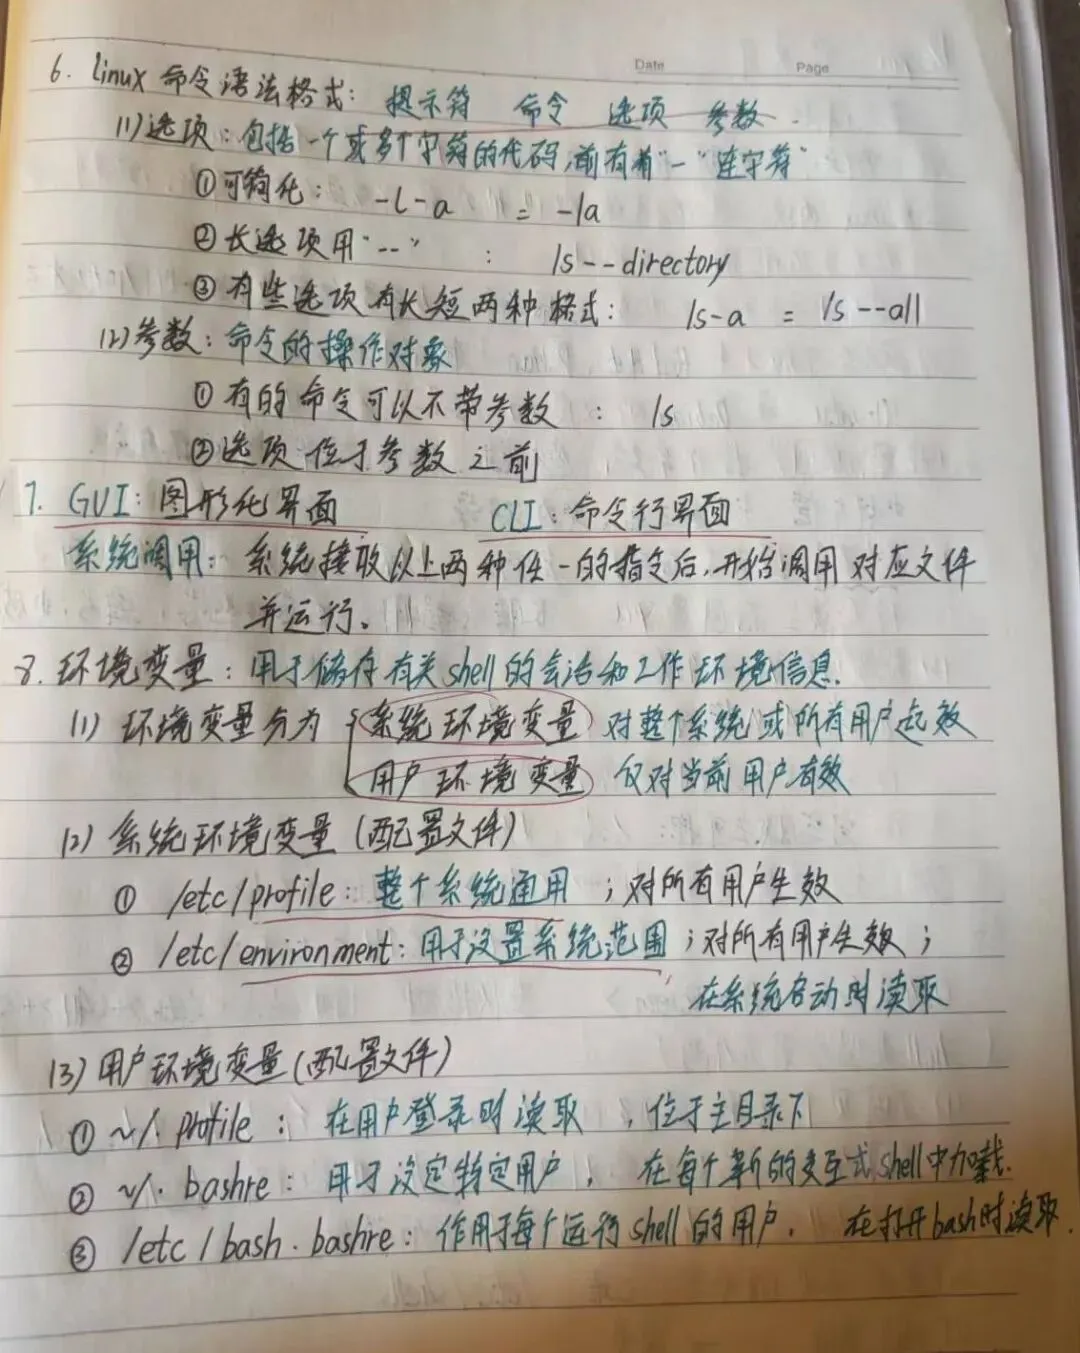 Date Page
6. linux 命令语法格式: 提示符 命令 选项 参数.
(1)选项:包括一个或多个字符的代码,前有着"-"连字符"
①可简化: -l-a = -la
②长选项用"--" : ls--directory
③有些选项有长短两种格式: ls-a = ls --all
(2)参数:命令的操作对象
①有的命令可以不带参数 : ls
②选项位于参数之前
7. GUI:图形化界面 CLI:命令行界面
系统调用:系统接收以上两种任一的指令后,开始调用对应文件
并运行。
8. 环境变量:用于储存有关shell的会话和工作环境信息.
(1) 环境变量分为 {系统环境变量 对整个系统或所有用户起效
用户环境变量 仅对当前用户有效
(2) 系统环境变量(配置文件)
① /etc/profile:整个系统通用 ;对所有用户生效
② /etc/environment:用于设置系统范围;对所有用户生效;
在系统启动时读取
(3) 用户环境变量(配置文件)
① ~/. profile : 在用户登录时读取 ,位于主目录下
② ~/. bashre: 用于设定特定用户, 在每个新的交互式shell中加载.
③ /etc/bash. bashre:作用于每个运行shell的用户, 在打开bash时读取.